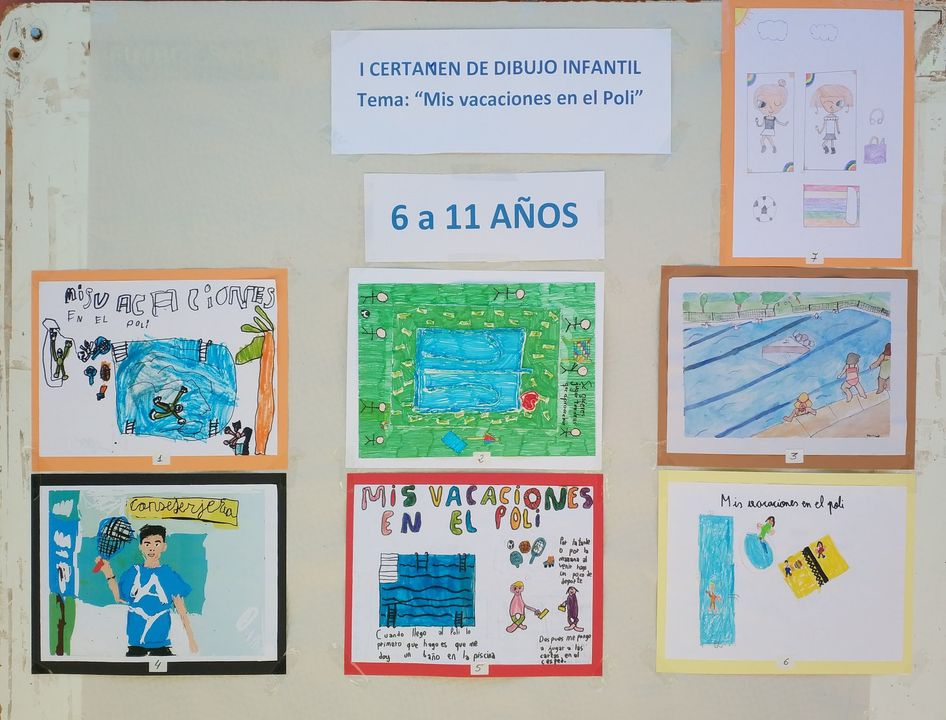 I CERTAMEN DE DIBUJO INFANTIL
Tema: “Mis vacaciones en el Poli”
6 a 11 AÑOS
7
MIS VACACIONES
EN EL POLI
1
2
3
Conseserjeria
4
MIS VACACIONES
EN EL POLI
Por la tarde
o por la
mañana al
venir hago
un poco de
deporte
Cuando llego al Poli lo
primero que hago es que me
doy un baño en la piscina
Dospues me pongo
a jugar a las
cartas en el
cesped.
5
Mis vacaciones en el poli
6